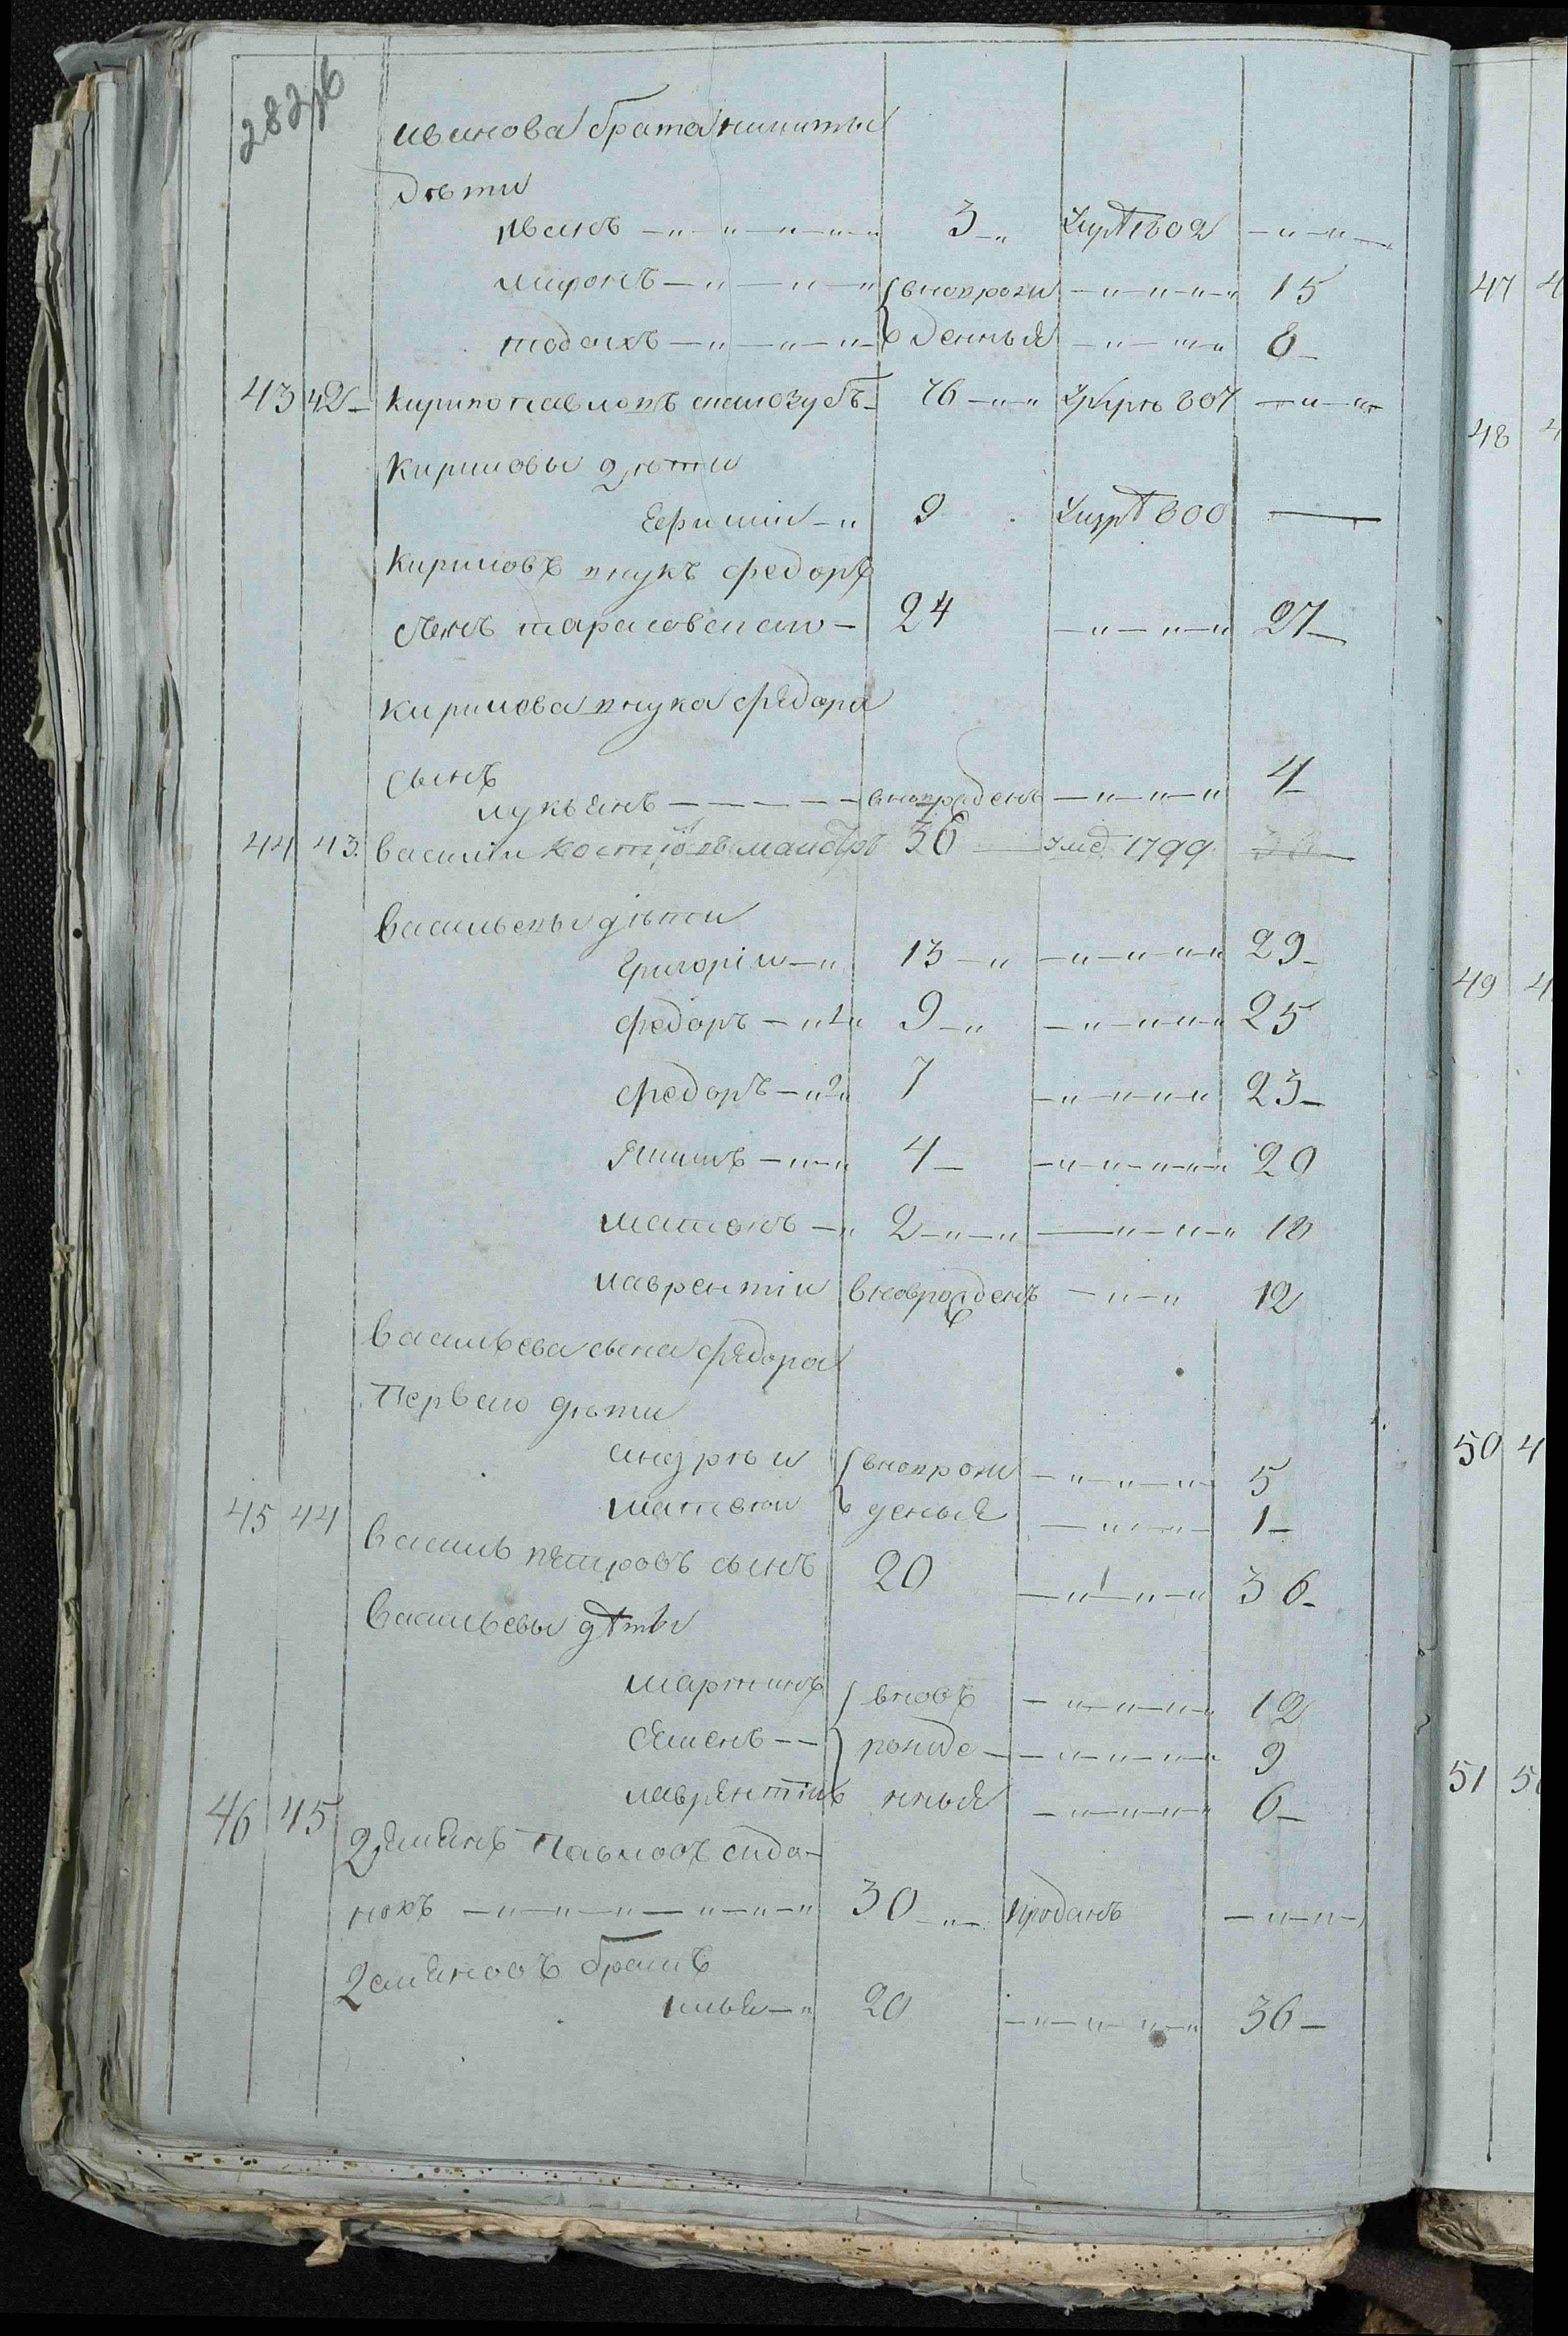 282 16
иванова брата никиты
дѣти
иванъ — 3 — 1802 —
миронъ — вновърож — 15
тодохъ — денныя — 8
43 42 кирило павловъ скалозубъ 76 — 807 —
Кириловы дѣти
Ефимий — 9 800 —
Кириловъ внукъ федоръ
сынъ тарасовъ 24 — 27
Кирилова внука федора
сынъ
лукьянъ — вноврожденъ — 4
44 43 василий костювъ 36 1799
васильевы дѣти
григорій — 13 — 29
федоръ — 1 — 9 — 25
федоръ — 2 — 7 — 23
якимъ — 4 — 20
2 — 18
лаврентій вноврожденъ — 12
васильева сына федора
первого дѣти
андрѣй вноврож — 5
матвѣй денныя — 1
45 44 василь петровъ сынъ 20 — 36
васильевы дѣти
мартинъ вновъ — 12
семенъ — рожде — 9
лаврентій нныя — 6
46 45 Демьянъ павловъ сидо-
нохъ — 30 — проданъ —
Демьяновъ братъ
илья — 20 — 36
47 4
48 4
49 4
50 4
51 5